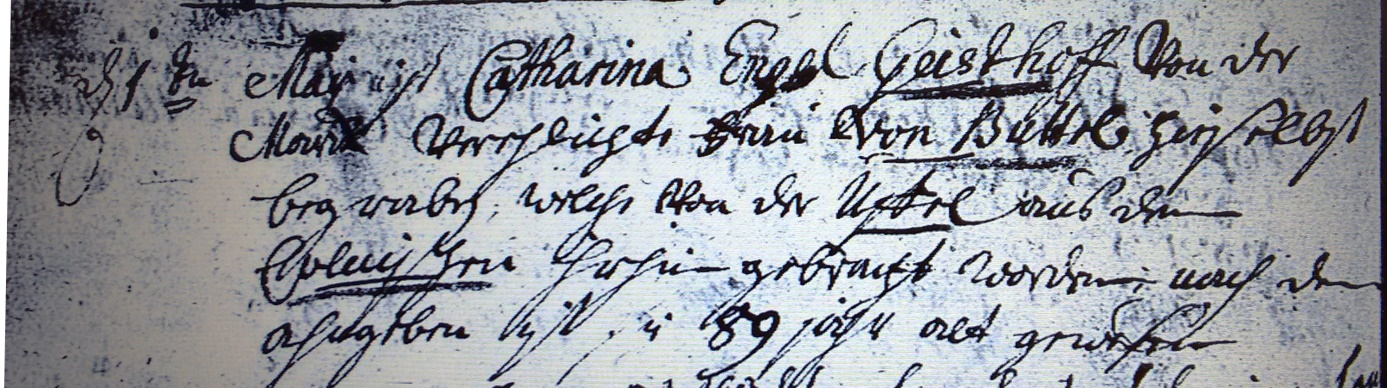 d 1 ten May ist Catharina Engel Geisthoff Von der
Marck Verehlichte Frau Von Büttel hieselbst
begraben, welche Von der Uffel aus dem
Cölnischen hirhin gebracht worden, nach dem
angeben ist sie 89 jahr alt gewesen